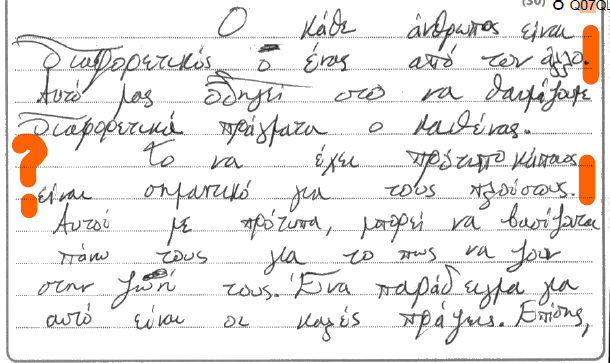 (30) Q07QL
Ο κάθε άνθρωπος είναι
διαφορετικός ο ένας από τον άλλο.
Αυτό μας οδηγεί στο να θαυμάζουμε
διαφορετικά πράγματα ο καθένας.
Το να έχει πρότυπο κάποιος
είναι σημαντικό για τους πλούσιους.
Αυτοί με πρότυπα, μπορεί να βασίζονται
πάνω τους για το πως να ζουν
στην ζωή τους. Ένα παράδειγμα για
αυτό είναι οι καλές πράξεις. Επίσης,